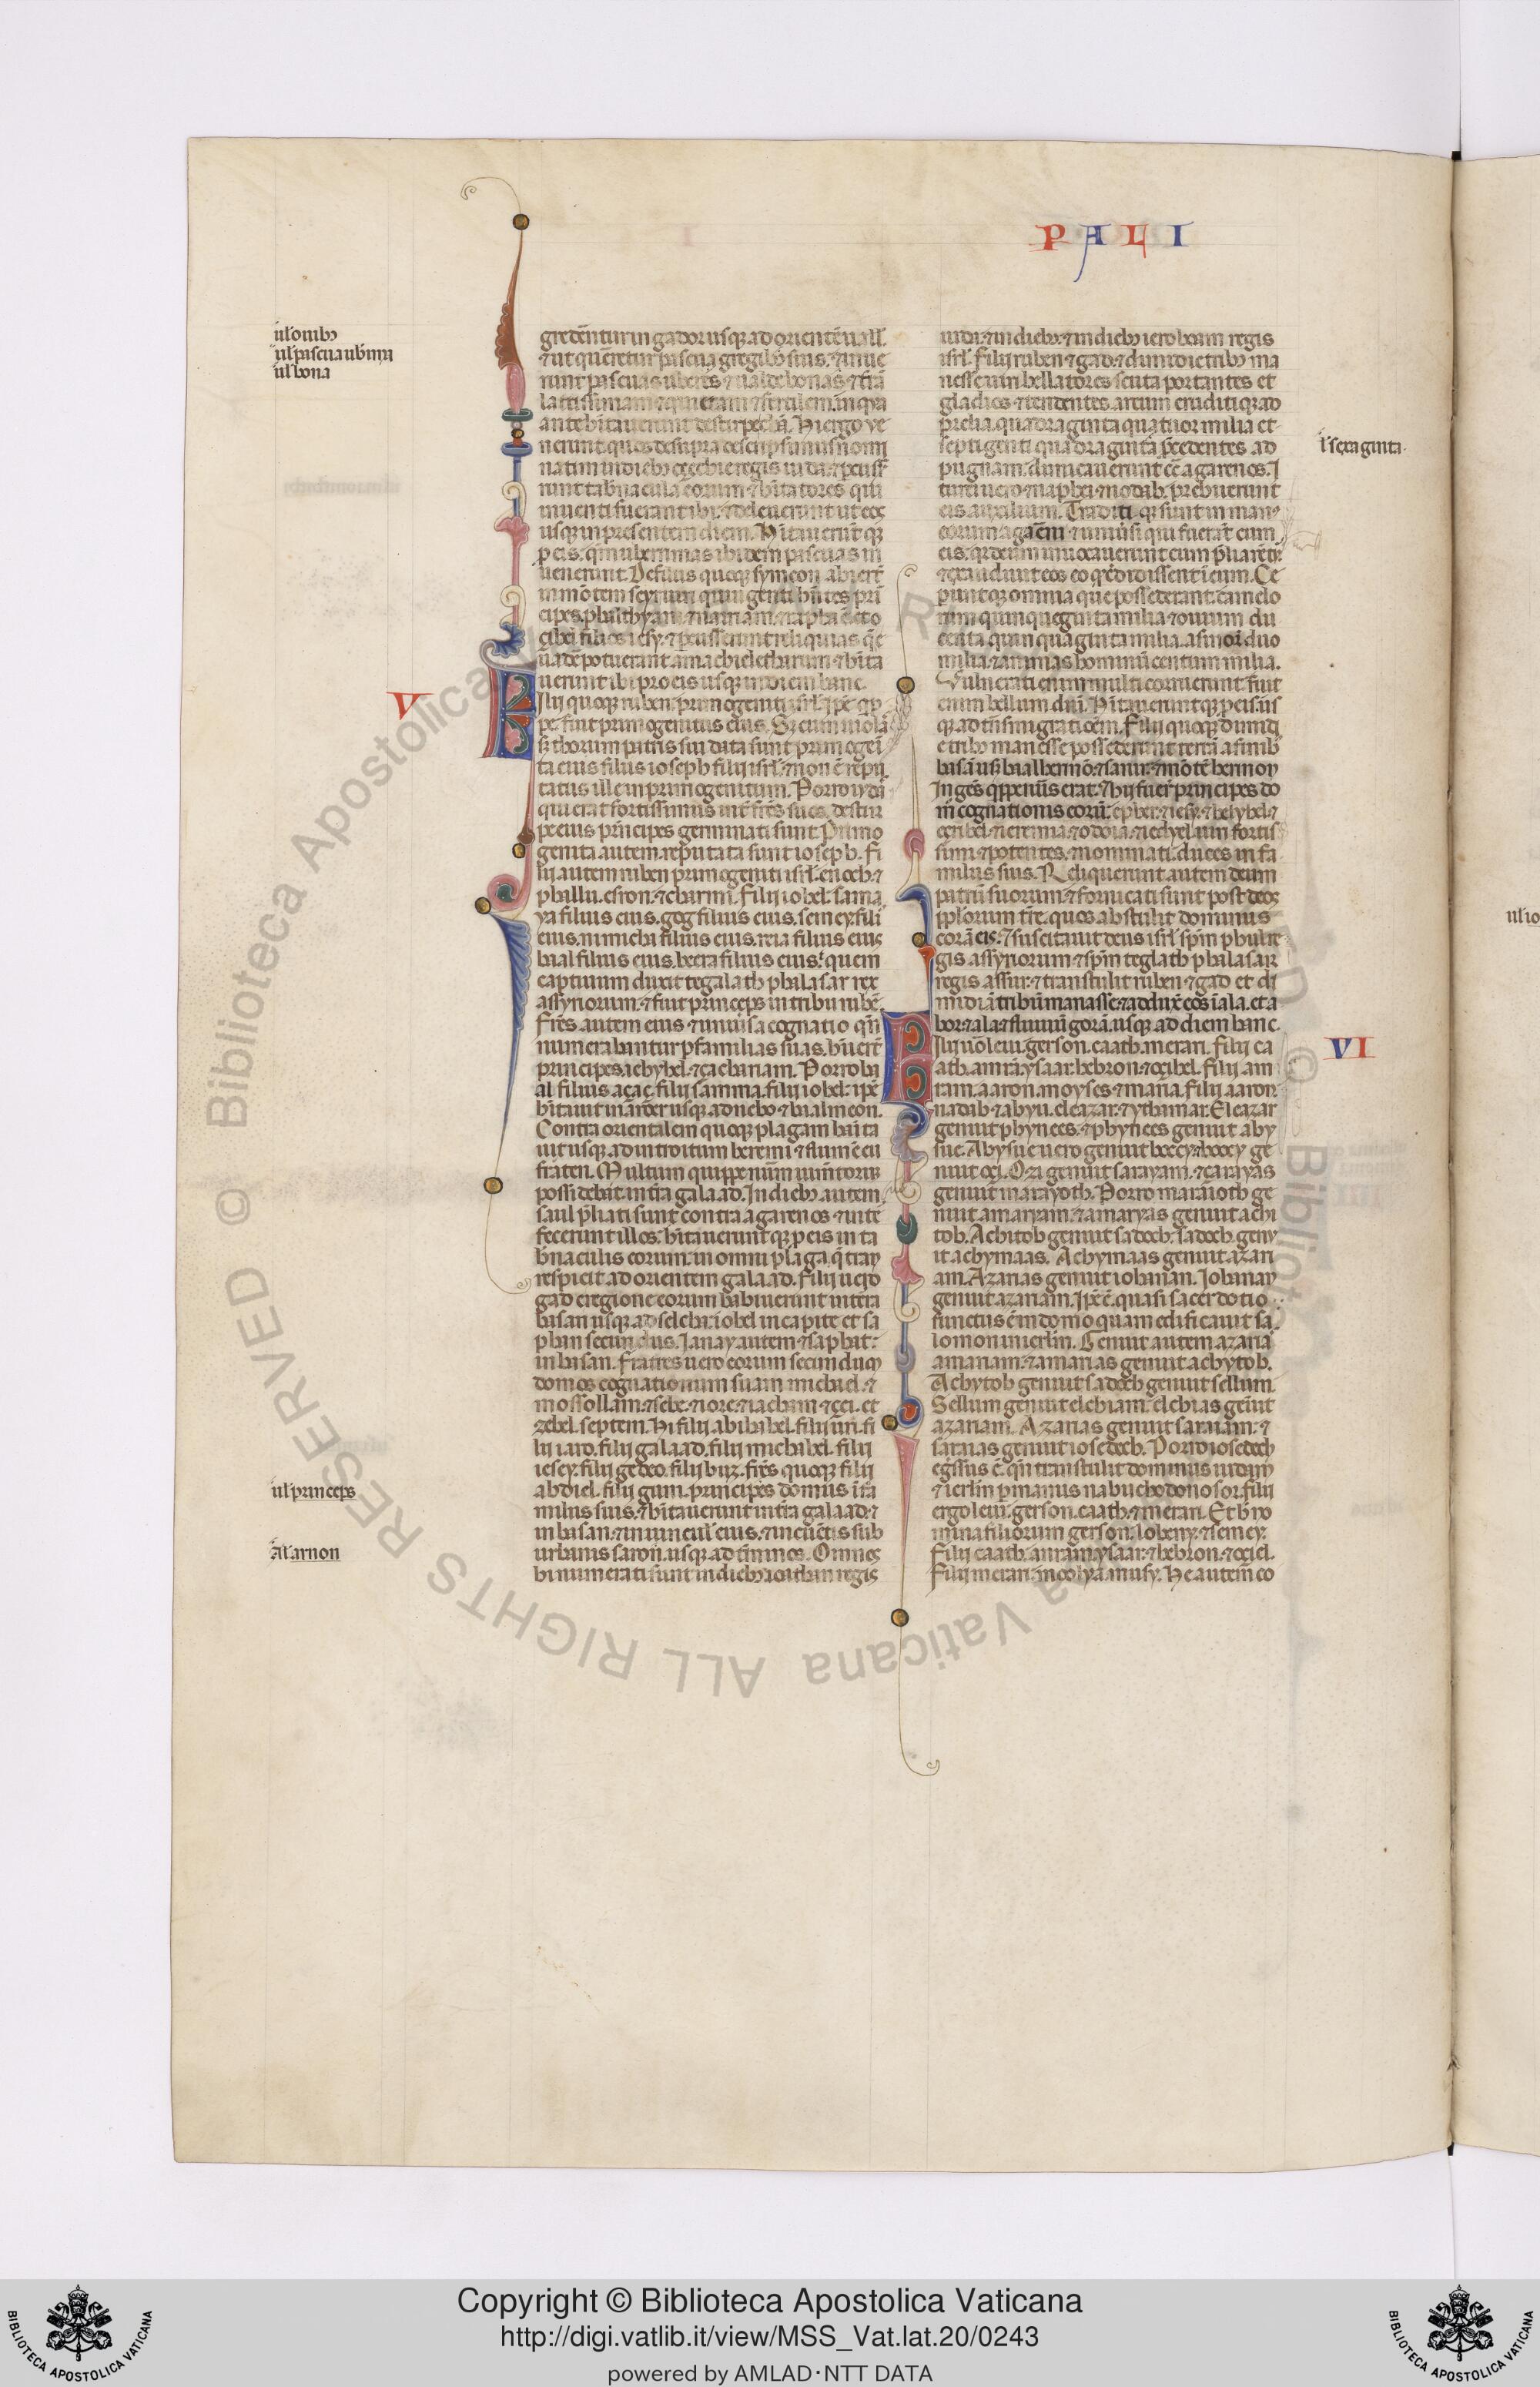 PALI
ul' omībȝ
ul' pascua ub'rima
ul' bona
grederentur in gador usqꝫ ad orientē uall'
⁊ ut quererent pascua gregibȝ suis. ⁊ inue
nerunt pascuas uberes ⁊ ualde bonas ⁊ t'rā
latissimam ⁊ quietam ⁊ fertilem. in qua
ante h'itauerunt de stirpe chā. Hi ergo ue
nerunt quos desupra descripsimus nomi
natim in diebȝ eçechie regis iuda. ⁊ p̄cuss'
runt tab'nacula eorum ⁊ h'itatores qui
inuenti fuerant ibi. ⁊ deleuerunt ut eos
usqꝫ in presentem diem. H'itauerūt qꝫ
p̄ eis. qm̄ uberrimas ibidem pascuas in
uenerunt. De filiis quoqꝫ symeon abierūt
in mōtem seyr uiri quingenti h'ntes prī
V
uerunt ibi pro eis usqꝫ in diem hanc.
Filij quoqꝫ ruben. primogeniti isrl'. ip̄e qip
pe fuit primogenitus eius. Sȝ cum uiolas
sȝ thorum patris sui data sunt primogeni
ta eius filiis ioseph filij isrl'. ⁊ non ē reput
tatus ille in primogenitum. Porro iudas
qui erat fortissimus int' frēs suos. de stir
pe eius principes germinati sunt. Primo
genita autem reputata sunt ioseph. Fi
lij autem ruben primogeniti isrl'. enoch. ⁊
phallu. esron. ⁊ charmi. Filij iohel. sama
ya filius eius. gog filius eius. semey. fili
eius. micha filius eius. reia filius eius
bial filius eius. beera filius eius. quem
captiuum duxit tegalath phalasar rex
assyriorum. ⁊ fuit princeps in tribu rubē.
Frēs autem eius ⁊ uniūsa cognatio qn̄
numerabantur p̄ familias suas. h'uerūt
principes. iehyhel. ⁊ çachariam. Porro ba
al filius açaç. filij samma. filij iohel. ip̄e
h'itauit in aroer usqꝫ ad nebo ⁊ bialmeon.
Contra orientalem quoqꝫ plagam h'ita
uit usqꝫ ad introitum heremi ⁊ flumē eu
fraten. Multum quippe num'm iumtorum
possidebat in t'ra galaad. In diebȝ autem
saul p̄liati sunt contra agarenos ⁊ int'
fecerunt illos. h'itauerunt qꝫ p̄ eis in ta
b'naculis eorum. in omni plaga. q̄ tran
respicit ad orientem galaad. Filij uero
gad e regione eorum habitauerunt in terra
basan usqꝫ ad selcha. iohel in capite et sa
phan secundus. Ianay autem ⁊ saphat.
in basan. Fratres uero eorum secundum
domos cognationum suarum michael. ⁊
mossollam. ⁊ sebe. ⁊ iore. ⁊ iachan ⁊ çei. et
zebel. septem. Hi filij abihihel. filij uri. fi
lij iaro. filij galaad. filij michihel. filij
iesey. filij geddo. filij buz. frēs quoqꝫ filij
ul' princeps
abdiel. filij guni. principes domus ī fa
milus suis. ⁊ h'itauerunt in t'ra galaad. ⁊
in basan. ⁊ in uiculis eius. ⁊ in cūctis sub
Al' arnon
urbanis saron. usqꝫ ad t'minos. Omnes
hi numerati sunt in diebȝ ioathan regis
iuda. ⁊ in diebȝ. ⁊ in diebȝ ieroboam regis
isrl'. Filij ruben ⁊ gad. ⁊ dimidie tribȝ ma
nasse uiri bellatores scuta portantes et
gladios. ⁊ tendentes arcum eruditi qꝫ ad
prelia. quadraginta quatuor milia et
l' sexaginta.
septigenti quadraginta p̄cedentes ad
pugnam. dimicauerunt cōt̄ agarenos. I
turei uero. ⁊ naphei. ⁊ nodab. prebuerunt
eis auxilium. Traditi qꝫ sunt in man'
eorum agareni ⁊ uniūsi qui fuerāt cum
eis. qꝫ deum inuocauerunt cum p̄liarēt'
⁊ exaudiuit eos eo qꝫ credidissent ī eum. Ce
perunt qꝫ omnia que possederant. camelo
rum quinquaginta milia. ⁊ ouium du
centa quinquaginta milia. asinos duo
milia. ⁊ animas hominū centum milia.
Vulnerati enim multi corruerunt. fuit
enim bellum dn̄i. H'itauerunt qꝫ p̄ eis us
qꝫ ad t'nsmigrationem. Filij quoqꝫ dimidi
e tribȝ manasse possederunt terrā a finibȝ
basā usqꝫ bialhermō. ⁊ sanir. ⁊ mōtē hermon
Ingēs qippe num's erat. ⁊ hij fuer' principes do
m' cognationis eorū. epher. ⁊ iesy. ⁊ helyhel. ⁊
ezrihel. ⁊ ieremia. ⁊ odoia. ⁊ iedyel. uiri fortis
simi ⁊ potentes. ⁊ nominati. duces in fa
milus suis. Reliquerunt autem deum
patrū suorum. ⁊ fornicati sunt post deos
p̄plorum t'rre. quos abstulit dominus
corā eis. ⁊ suscitauit deus isrl' sp̄m phul re
gis assyriorum ⁊ sp̄m teglath phalasar
regis assur. ⁊ transtulit ruben ⁊ gad et di
midiā tribū manasse. ⁊ adduxē eos ī ala. et a
bor. ⁊ ala. ⁊ fluuiū gorā. usqꝫ ad diem hanc.
VI
Filij uō leui. gerson. caath. merari. Filij ca
ath. amrā. ysaar. hebron. ⁊ oçihel. Filij am
ram. aaron. moyses. ⁊ maria. Filij aaron
nadab ⁊ abyu. eleazar. ⁊ ythamar. Eleazar
genuit phynees. ⁊ phynees genuit aby
sue. Abysue uero genuit boccy. ⁊ boccy ge
nuit oçi. Ozi genuit sarayam. ⁊ çarayas
genuit marayoth. Porro maraioth ge
nuit amaryam. ⁊ amaryas genuit achi
tob. Achitob genuit sadoch. Sadoch genu
it achymaas. Achymaas genuit azari
am. Azarias genuit iohanan. Iohanan
genuit azariam. Ip̄e ē. quasi sacerdotio
functus ē in domo quam edificauit sa
lomon in ierl'm. Genuit autem azarias
amariam. ⁊ amarias genuit achytob.
Achytob genuit sadoch genuit sellum.
Sellum genuit elchiam. elchias genuit
azariam. Azarias genuit saraiam. ⁊
saraias genuit iosedech. Porro iosedech
egressus ē. qn̄ transtulit dominus iudam
⁊ ierl'm p̄ manus nabuchodonosor. filij
ergo leui. gerson. caath. ⁊ merari. Et h' no
mina filiorum gerson. lobeny. ⁊ semey.
Filij caath. amram. ysaar. ⁊ hebron. ⁊ oçiel.
Filij merari. mooly. ⁊ musy. He autem co
Copyright © Biblioteca Apostolica Vaticana
http://digi.vatlib.it/view/MSS_Vat.lat.20/0243
powered by AMLAD·NTT DATA
© Biblioteca Apostolica Vaticana ALL RIGHTS RESERVED
BIBLIOTECA APOSTOLICA VATICANA
BIBLIOTECA APOSTOLICA VATICANA